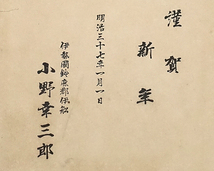 謹賀
新年
明治三十七年一月一日
伊勢國鈴鹿郡
小野幸三郎